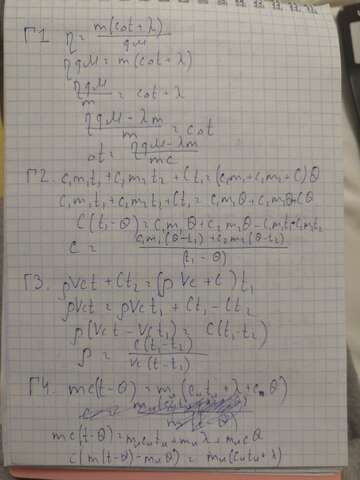 Г1 η = m(cσt + λ) / qμ
ηqμ = m(cσt + λ)
ηqμ / m = cσt + λ
ηqμ - λm / m = cσt
σt = ηqμ - λm / mc
Г2. c₁m₁t₁ + c₂m₂t₂ + Ct₁ = (c₁m₁ + c₂m₂ + C)θ
c₁m₁t₁ + c₂m₂t₂ + Ct₁ = c₁m₁θ + c₂m₂θ + Cθ
C(t₁ - θ) = c₁m₁θ + c₂m₂θ - c₁m₁t₁ - c₂m₂t₂
C = c₁m₁(θ - t₁) + c₂m₂(θ - t₂) / (t₁ - θ)
Г3. ρVct + Ct₂ = (ρVc + C)t₁
ρVct = ρVct₁ + Ct₁ - Ct₂
ρ(Vct - Vct₁) = C(t₁ - t₂)
ρ = C(t₁ - t₂) / Vc(t - t₁)
Г4. mc(t - θ) = mн(cнtн + λ + cθ)
mc(t - θ) = mнcнtн + mнλ + mнcθ
c(m(t - θ) - mнθ) = mн(cнtн + λ)